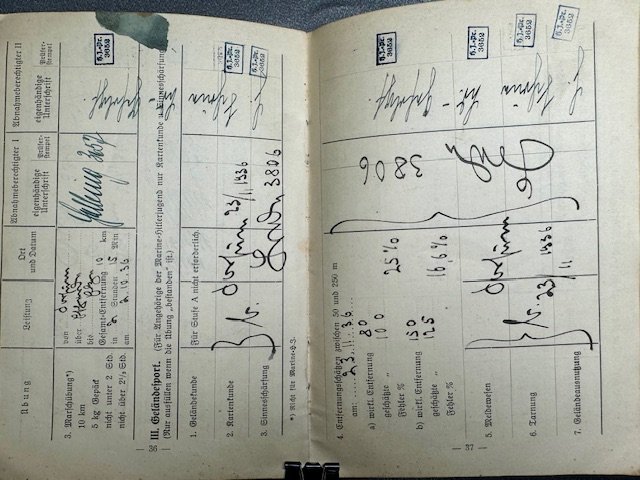 Übung
Leistung
Ort und Datum
Abnahmeberechtigter I
eigenhändige Unterschrift
Prüfer-stempel
Abnahmeberechtigter II
eigenhändige Unterschrift
Prüfer-stempel
3. Marschübung*)
10 km
5 kg Gepäck
nicht unter 2 Std.
nicht über 2½ Std.
von
über
bis
Gesamt-Entfernung 10 km
in 2 Stunden 15 Min
2.10.36.
3652
S.J.-Pr.
3652
III. Geländesport. (Für Angehörige der Marine-Hitlerjugend nur Kartenkunde u. Sinnesschärfung
(Nur ausfüllen wenn die Übung „bestanden“ ist.)
1. Geländekunde
Für Stufe A nicht erforderlich.
2. Kartenkunde
3. Sinnesschärfung
23/11 1936
3806
S.J.-Pr.
3652
S.J.-Pr.
3652
*) Nicht für Marine-HJ.
— 36 —
4. Entfernungsschätzen zwischen 50 und 250 m
am: 23.11.36.
a) wirkl. Entfernung 80
geschätzte „ 100
Fehler % 25%
b) wirkl. Entfernung 150
geschätzte „ 125
Fehler % 16,6%
3806
S.J.-Pr.
3652
5. Meldewesen
6. Tarnung
7. Geländeausnutzung
23/11 1936
S.J.-Pr.
3652
S.J.-Pr.
3652
S.J.-Pr.
3652
— 37 —